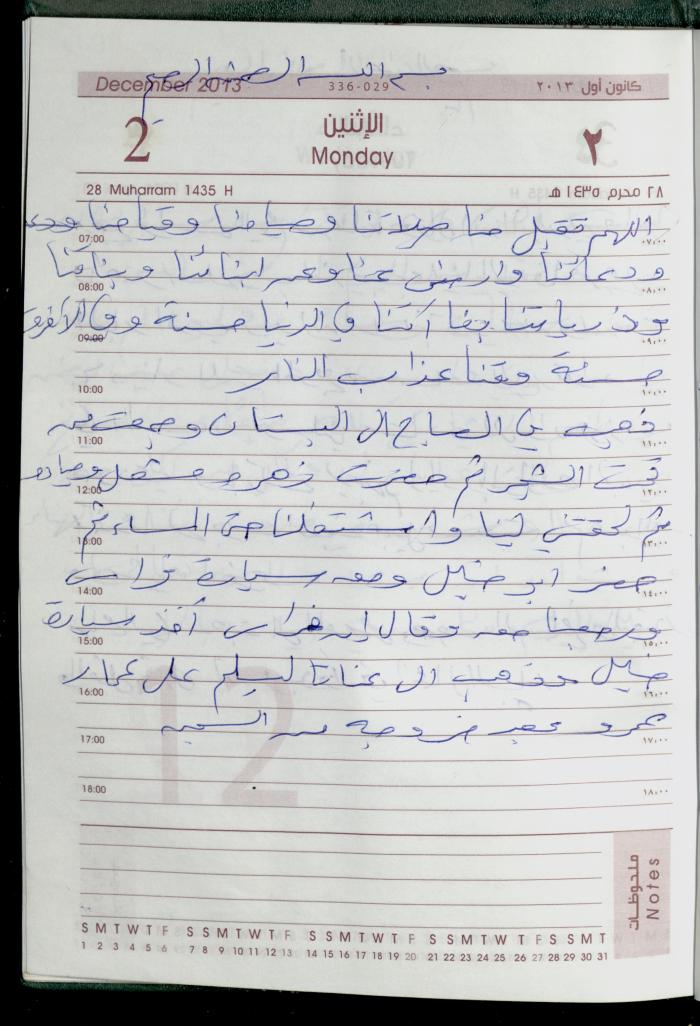 بسم الله الرحمن الرحيم
December 2013 336-029 كانون أول ٢٠١٣
2 الإثنين Monday ٢
28 Muharram 1435 H ٢٨ محرم ١٤٣٥ هـ
اللهم تقبل منا صلاتنا وصيامنا وقيامنا
07:00 ٠٧,٠٠
ودعائنا وارضى عنا وعن ابنائنا وبناتنا
08:00 ٠٨,٠٠
وذرياتنا ربنا آتنا في الدنيا حسنة وفي الآخرة
09:00 ٠٩,٠٠
حسنة وقنا عذاب النار
10:00 ١٠,٠٠
ذهبت في الصباح الى البستان وجمعت من
11:00 ١١,٠٠
تحت الشجر ثم حضرت زهره
12:00 ١٢,٠٠
ثم لحقتني لينا واشتغلنا حتى المساء ثم
13:00 ١٣,٠٠
حضر ابو خليل ومعه سيارة فراس
14:00 ١٤,٠٠
ورجعنا معه وقال إن فراس أخذ سيارة
15:00 ١٥,٠٠
خليل وذهب الى عناتا ليسلم على عمار
16:00 ١٦,٠٠
بعد خروجه من السجن
17:00 ١٧,٠٠
18:00 ١٨,٠٠
12
ملحوظات Notes
S M T W T F S S M T W T F S S M T W T F S S M T W T F S S M T
1 2 3 4 5 6 7 8 9 10 11 12 13 14 15 16 17 18 19 20 21 22 23 24 25 26 27 28 29 30 31